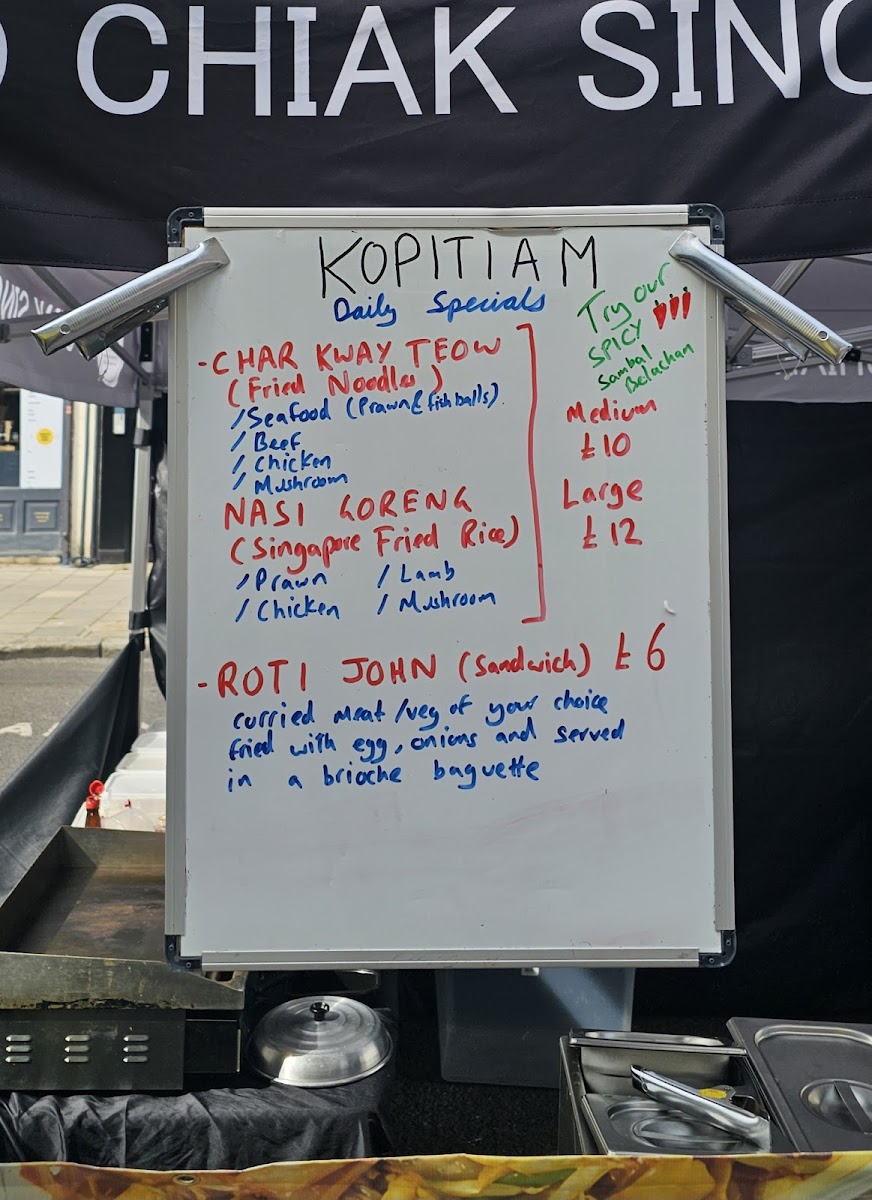 CHIAK SING
KOPITIAM
Daily Specials
Try our
SPICY
Sambal
Belachan
- CHAR KWAY TEOW
(Fried Noodles)
/ Seafood (Prawn & fishballs)
/ Beef
/ Chicken
/ Mushroom
NASI GORENG
(Singapore Fried Rice)
/ Prawn / Lamb
/ Chicken / Mushroom
Medium
£10
Large
£12
- ROTI JOHN (Sandwich) £6
curried meat/veg of your choice
fried with egg, onions and served
in a brioche baguette